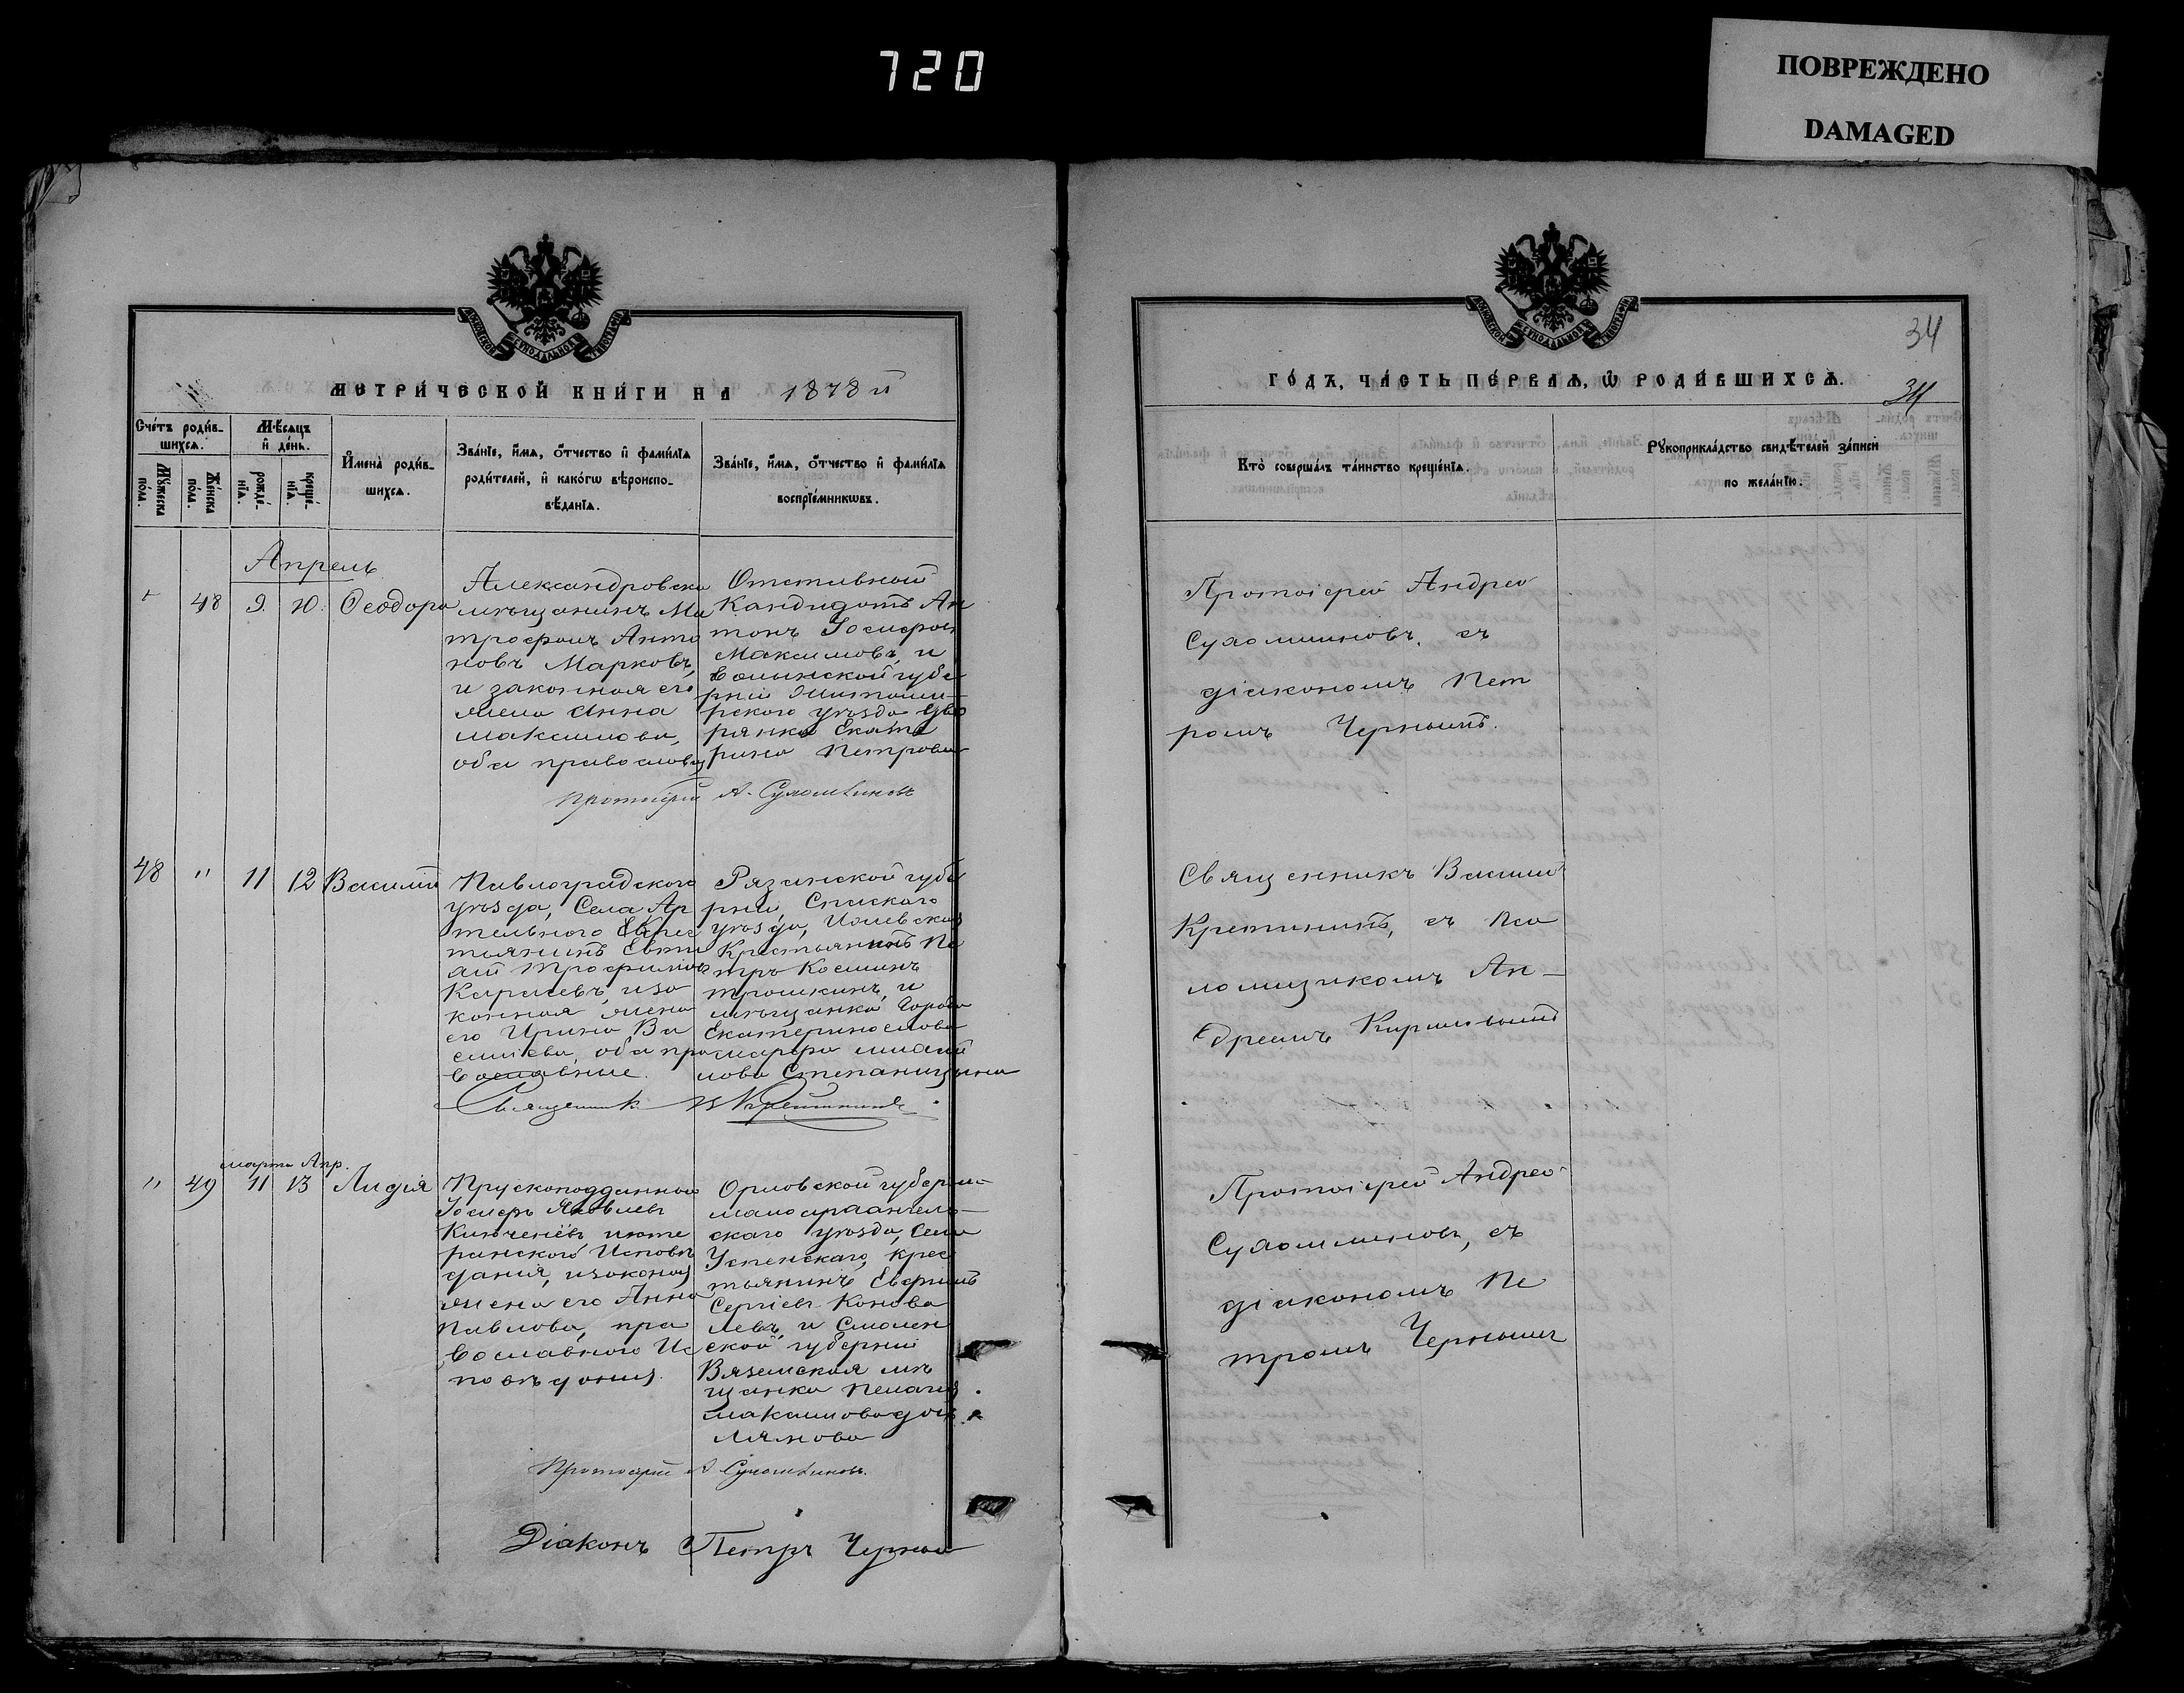 720
ПОВРЕЖДЕНО
DAMAGED
МЕТРИ́ЧЕСКОЙ КНИ́ГИ НА 1878й
Сче́тъ роди́в-
шихсѧ.
Мѣ́сѧцъ
и҆ де́нь.
Мꙋ́жеска по́ла.
Же́нска по́ла.
рожде́-нїѧ.
креще́-нїѧ.
И҆мена̀ роди́в-
шихсѧ.
Зва́нїе, и҆́мѧ, ѻ҆́тчество и҆ фамі́лїѧ
роди́телей, и҆ како́гѡ вѣроиспо-
вѣ́данїѧ.
Зва́нїе, и҆́мѧ, ѻ҆́тчество и҆ фамі́лїѧ
воспрїе́мникѡвъ.
Апрель
48 9. 10. Ѳеодора
Александровскій
мѣщанинъ Ми
трофанъ Анто
новъ Марковъ,
и законная его
жена Анна
Максимова,
оба православ
Отставной
Кандидатъ Ан
тонъ Іосифовъ
Максимовъ, и
Волынской губе
рніи Житоми-
рского уѣзда дво
рянка Екате
рина Петрова
Протоіерей А. Сухомлиновъ
48 " 11 12 Василій
Павлоградского
уѣзда, Села Ар
тельного Крес
тьянинъ Евти
хій Трофимовъ
изо
конная жена
его Ирина Ва
силіева, оба пра
вославные.
Рязанской губе
рніи, Спаского
уѣзда, Ижевской
Крестьянинъ Пе
тръ Косминъ
Трошкинъ, и
мѣщанка Города
Екатеринослава
Марфа Михай
лова Степаницына
Священник В Кретининъ
марта Апр.
" 49 11 13 Лидія
Прускоподданной
Іосифъ Яковлевъ
люте
ранского Исповѣ
данія, изаконая
жена его Анна
Павлова, пра
вославного Ис
повѣданія.
Орловской губерніи
малоархангель-
скаго уѣзда, Села
Успенскаго, Крес
тьянинъ Евфимъ
Сергіевъ Конова
левъ, и Смолен
ской губерніи
Вяземская мѣ
щанка Пелагія
Максимова
Протоіерей А Сухомлиновъ.
Діаконъ Петръ Черный
34
ГО́ДЪ, ЧА́СТЬ ПЕ́РВАѦ, Ѽ РОДИ́ВШИХСѦ.
34
Кто̀ соверша́лъ та́инство креще́нїѧ.
Рꙋкоприкла́дство свидѣ́телей за́писи
по жела́нїю.
Протоіерей Андрей
Сухомлиновъ, съ
діакономъ Пет
ромъ Чернымъ.
Священникъ Василій
Кретининъ, съ Пса
ломщикомъ Ан-
дреемъ
Протоіерей Андрей
Сухомлиновъ, съ
діакономъ Пе
тромъ Чернымъ